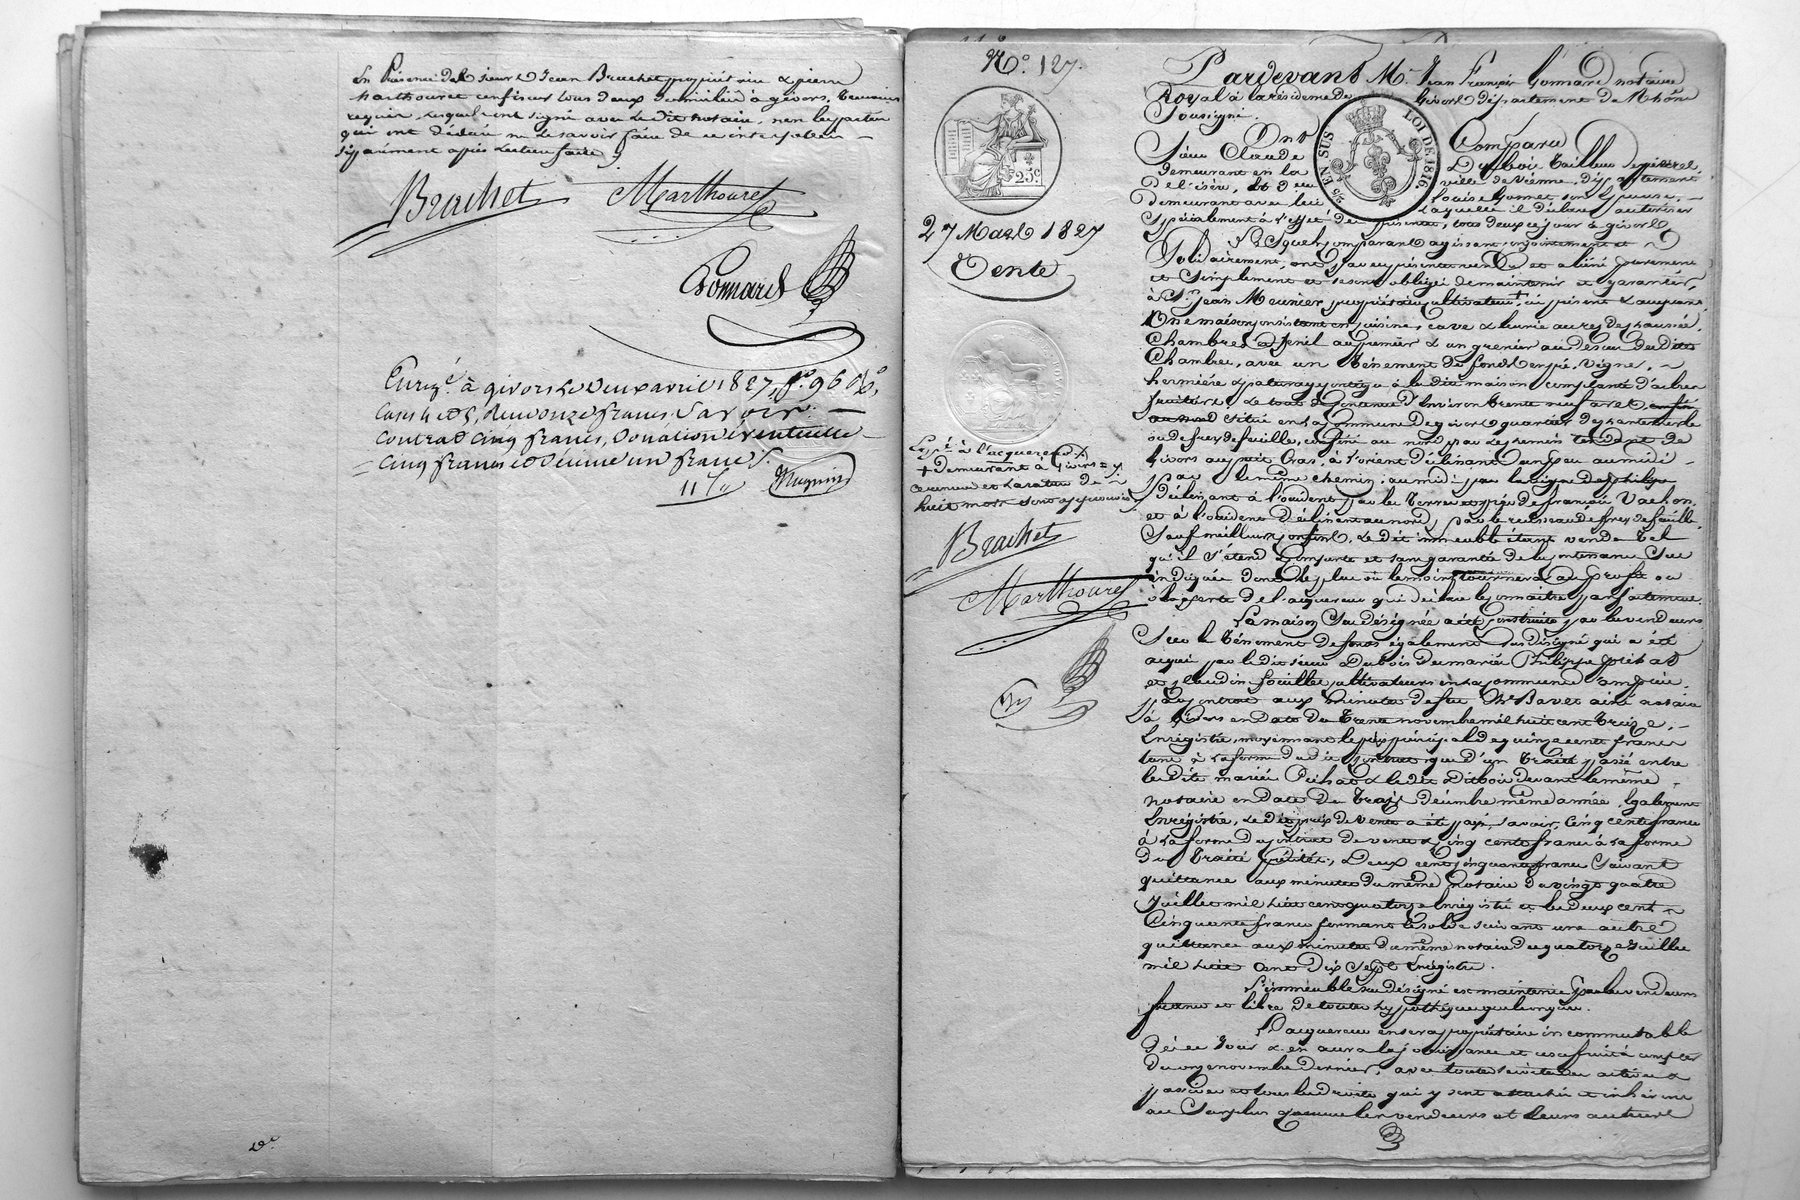 En Présence de sieurs Jean Brachet propriétaire & pierre
Marthouret confiseur tous deux domiciliés à givors, temoins
requis, lesquels ont signé avec ledit notaire, non les parties
qui ont déclaré ne le savoir faire de ce interpellées
séparément après lecture faite
Brachet Marthouret
Gonnard
Enregé à givors le deux avril 1827, fo 96 Ro,
cases 4 et 5, Reçu onze francs, Savoir:
contrat cinq francs, Donation éventuelle
cinq francs et Décime un franc.
11 f
No 127.
25c
27 Mars 1827
Vente
à l'acquereur
+ demeurant à Givors
huit mots sont approuvés
Brachet
Marthouret
Pardevant Me Jean François Gonnard notaire
Royal à la résidence de Givors département du Rhône
Soussigné.
Ont Comparu
25 EN SUS LOI DE 1816
Sieur Claude Dubois tailleur de pierres
demeurant en la ville de Vienne, département
de l'isère, et dame Louise Gomet son épouse
demeurant avec lui laquelle il déclare autoriser
Spécialement à l'effet des présentes, tous deux ce jour à givors
Lesquels comparants agissant conjointement et
Solidairement, ont par ces présentes vendu et aliéné purement
et Simplement et se sont obligés de maintenir et garantir,
à Sr Jean Meunier propriétaire cultivateur +, ici présent & acceptant
Une maison consistant en cuisine, cave & écurie au rez de chaussée,
Chambres & fenil au premier & un grenier au dessus des dites
Chambres, avec un Ténement de fonds en pré, vigne,
hermière & paturage contigu à la dite maison complanté d'arbres
fruitiers. Le tout de contenue d'environ trente neuf ares,
situé en la commune de givors quartier de
ou de frey de feuille, confiné au nord par le chemin tendant de
Givors au petit Cras, à l'orient déclinant un peu au midi
par le même chemin, au midi par la vigne de philipe
déclinant à l'occident par les terres et pré de françois Vachon
et à l'occident déclinant au nord, par le ruisseau de frey de feuille
Sauf meilleurs confins. Le dit immeuble étant vendu tel
qu'il s'étend & comporte et sans garantie de la contenance Sus
indiquée dont le plus ou le moins tournera au profit ou
à la perte de l'acquereur qui déclare le connaître parfaitement.
La maison Sus désignée a été construite par les vendeurs
Sur le ténement de fonds également Sus désigné qui a été
acquis par le dit sieur Dubois des mariés Philippe pichat
et claudine fouillet cultivateurs en la commune d'ampuis
par contrat aux minutes de feu Me Bavet ainé notaire
à Givors en date du trente novembre mil huit cent treize,
Enregistré, moyennant le prix principal de quinze cents francs
tant à la forme du dit contrat que d'un traité passé entre
les dits mariés Pichat & le dit Dubois devant le même
notaire en date du trois décembre même année, également
Enregistré, Le dit prix de vente a été payé, savoir, Cinq cents francs
à la forme du contrat de vente & cinq cents francs à la forme
du traité précité, Deux cent cinquante francs Suivant
quittance aux minutes du même notaire du vingt quatre
juillet mil huit cent quatorze Enregistré et les deux cent
Cinquante francs formant le solde suivant une autre
quittance aux minutes du même notaire du quatorze juillet
mil huit cent Dix Sept Enregistré.
L'immeuble sus désigné est maintenu par les vendeurs
franc et libre de toutes hypothèques quelconques.
L'acquereur en sera propriétaire incommutable
dès ce jour & en aura la jouissance et ces fruits à compter
du onze novembre dernier, avec toutes servitudes actives &
passives et tous les droits qui y sont attachés et inhérents
au Surplus comme les vendeurs et leurs auteurs